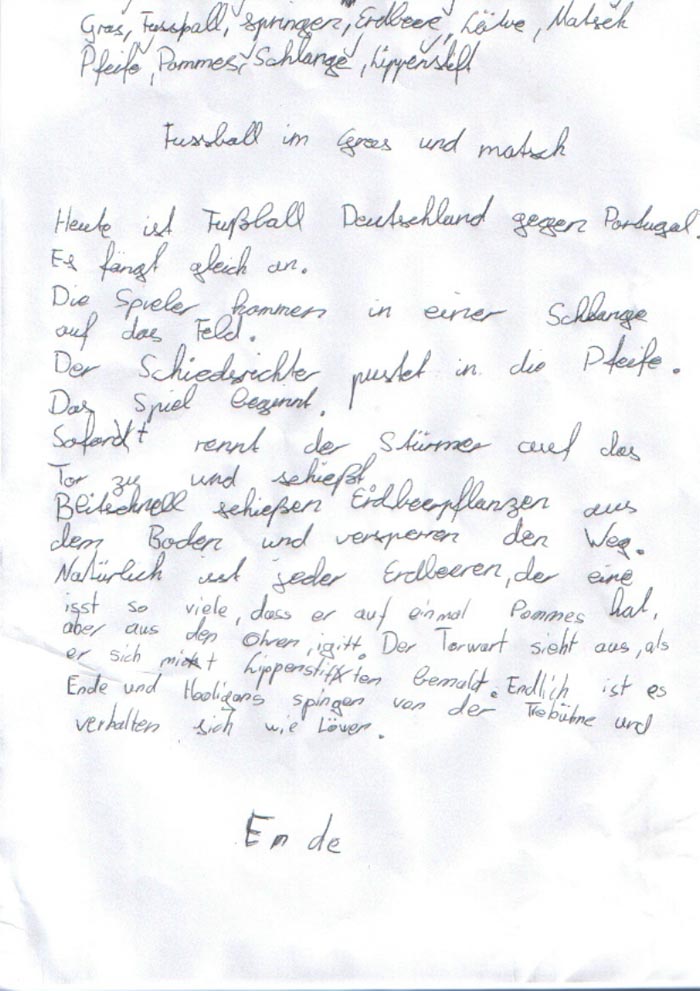 Gras, Fussball, springen, Erdbeere, Löwe, Matsch
Pfeife, Pommes, Schlange, Lippenstift
Fussball im Gras und matsch
Heute ist Fußball Deutschland gegen Portugal.
Es fängt gleich an.
Die Spieler kommen in einer Schlange
auf das Feld.
Der Schiedsrichter pustet in die Pfeife.
Das Spiel beginnt.
Sofordt rennt der Stürmer auf das
Tor zu und schießt
Blitschnell schießen Erdbeerpflanzen aus
dem Boden und versperren den Weg.
Natürlich isst jeder Erdbeeren, der eine
isst so viele, dass er auf einmal Pommes hat,
aber aus den Ohren, igitt. Der Torwart sieht aus, als
er sich mit Lippenstiften bemalt. Endlich ist es
Ende und Hooligans spingen von der Trebühne und
verhalten sich wie Löwen.
Ende